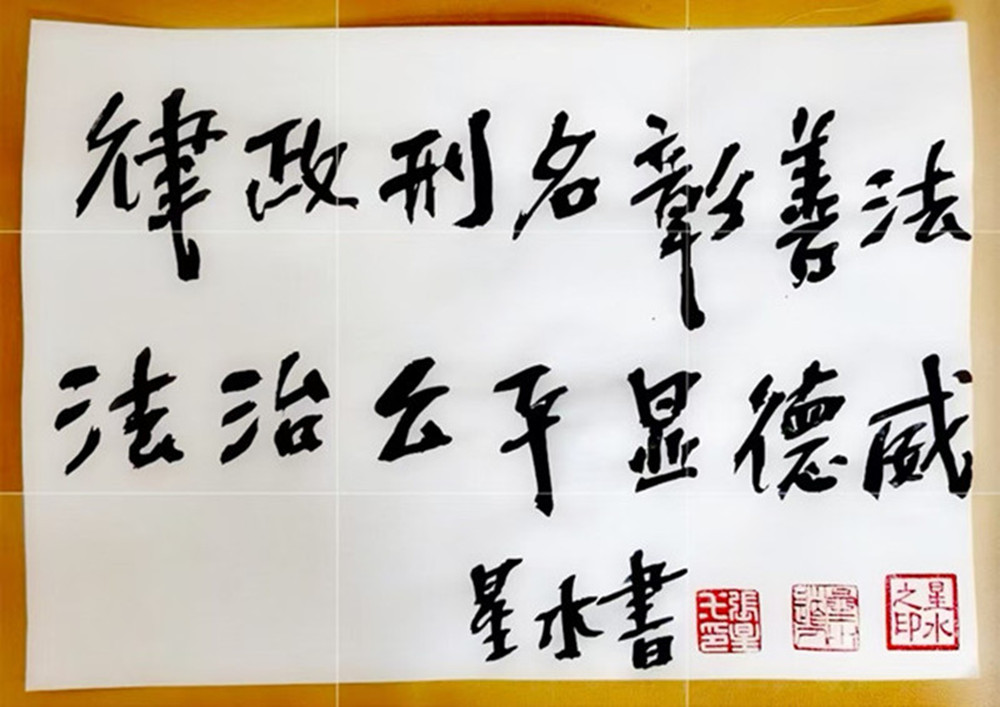 律政刑名彰善法
法治公平显德威
星水書
星水之印